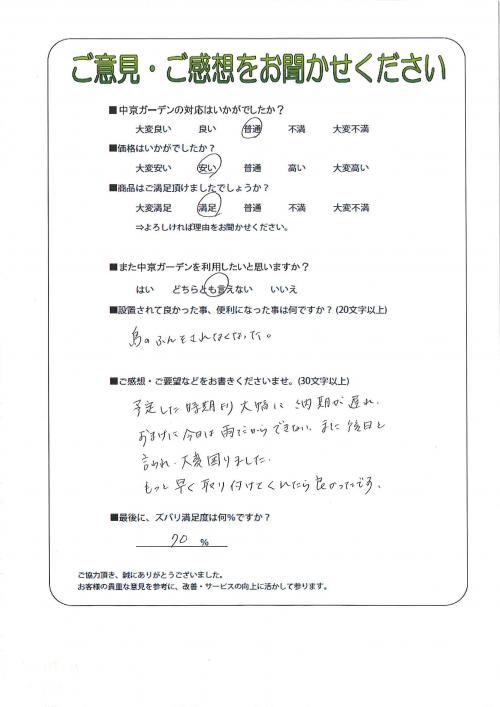 ご意見・ご感想をお聞かせください
■中京ガーデンの対応はいかがでしたか？
大変良い　良い　普通　不満　大変不満
■価格はいかがでしたか？
大変安い　安い　普通　高い　大変高い
■商品はご満足頂けましたでしょうか？
大変満足　満足　普通　不満　大変不満
⇒よろしければ理由をお聞かせください。
■また中京ガーデンを利用したいと思いますか？
はい　どちらとも言えない　いいえ
■設置されて良かった事、便利になった事は何ですか？(20文字以上)
鳥のふんをされなくなった。
■ご感想・ご要望などをお書きくださいませ。(30文字以上)
予定した時期より大幅に納期が遅れ、
おまけに今日は雨だからできない、また後日と
言われ、大変困りました。
もっと早く取り付けてくれたら良かったです。
■最後に、ズバリ満足度は何％ですか？
70 %
ご協力頂き、誠にありがとうございました。
お客様の貴重な意見を参考に、改善・サービスの向上に活かして参ります。